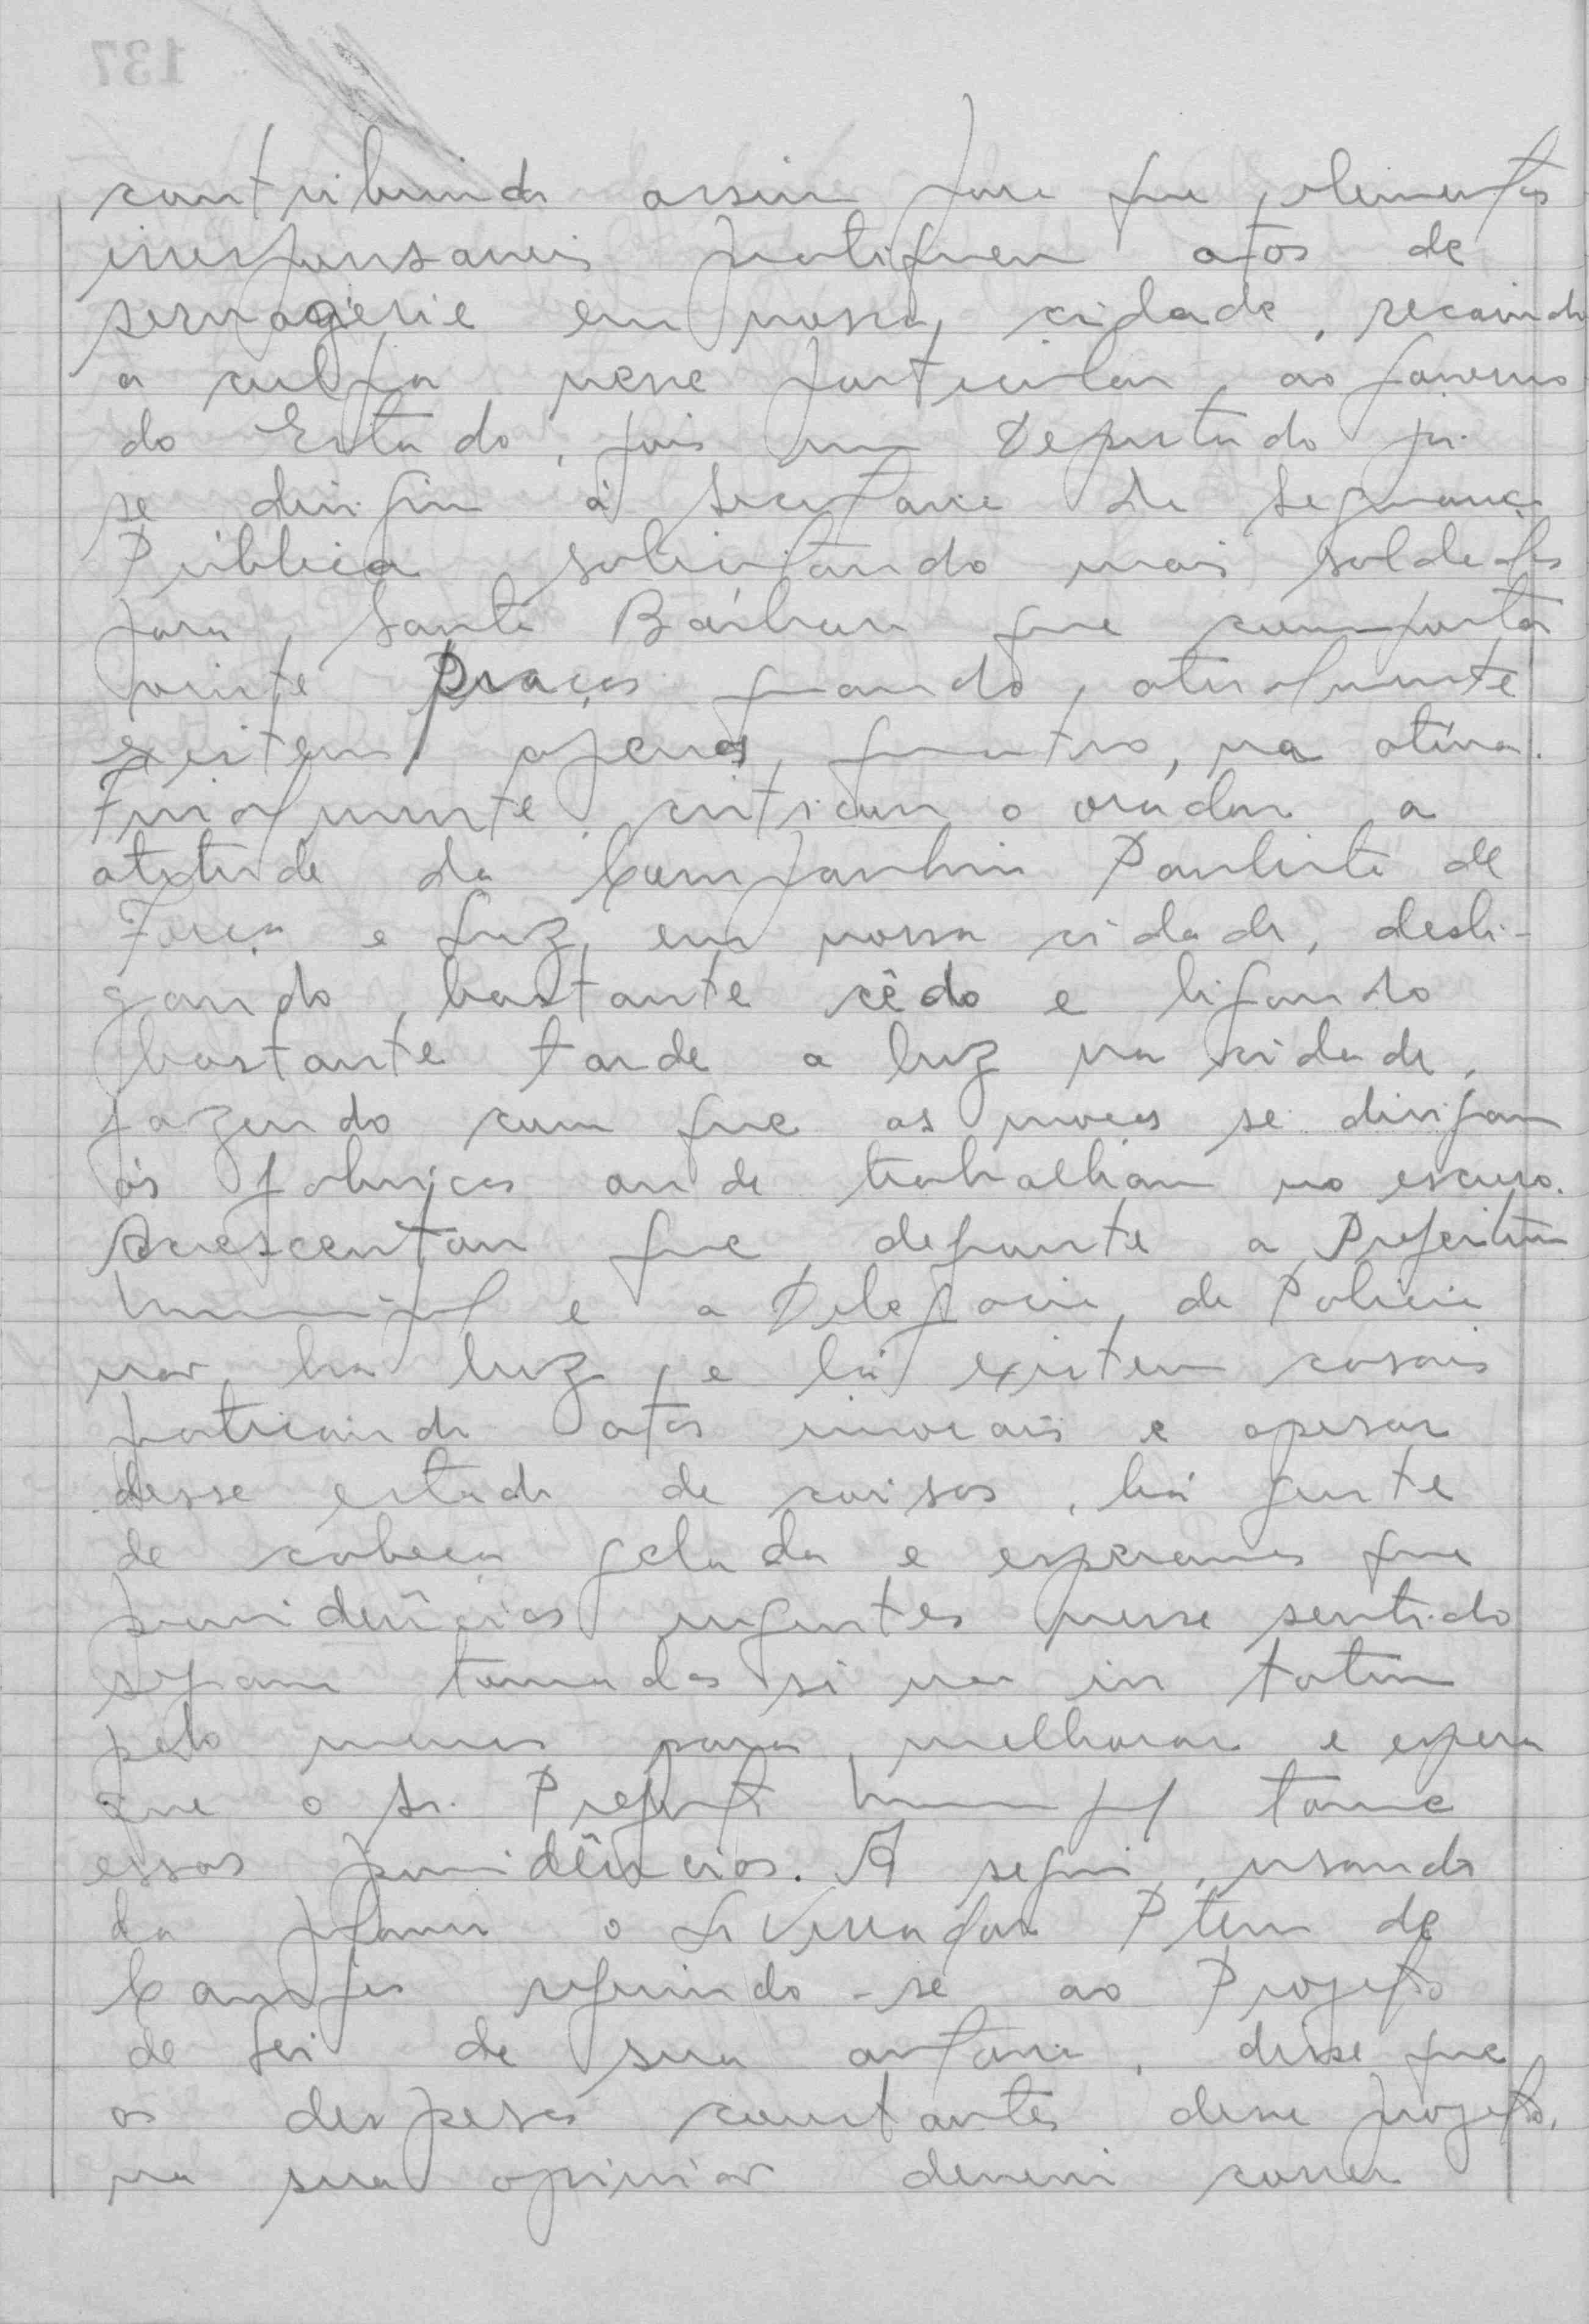 contribuindo assim para que elementos
irresponsaveis pratiquem atos de
selvagerie em nossa cidade, recaindo
a culpa nesse particular, ao governo
do Estado, pois um Deputado já
se dirigiu á Secretaria de Segurança
Pública solicitando mais soldados
para Santa Bárbara que comporta
vinte praças quando, atualmente
existem apenas quatro, na ativa.
Finalmente criticou o orador a
atitude da Companhia Paulista de
Força e Luz, em nossa cidade, desli-
gando bastante cêdo e ligando
bastante tarde a luz na cidade,
fazendo com que as moças se dirijam
ás fabricas onde trabalham no escuro.
Acrescentou que defronte a Prefeitura
Municipal e a Delegacia de Policia
não ha luz, e lá existem casais
praticando atos imorais e apesar
desse estado de coisas, há gente
de cabeça gelada e esperamos que
providências urgentes nesse sentido
sejam tomadas si não in totum
pelo menos para melhorar e espera
que o sr. Prefeito Municipal tome
essas providências. A seguir, usando
da palavra o Sr Vereador Ptem de
Campos referindo-se ao Projeto
de Lei de sua autoria, disse que
as despesas constantes desse projeto,
na sua opinião devem correr